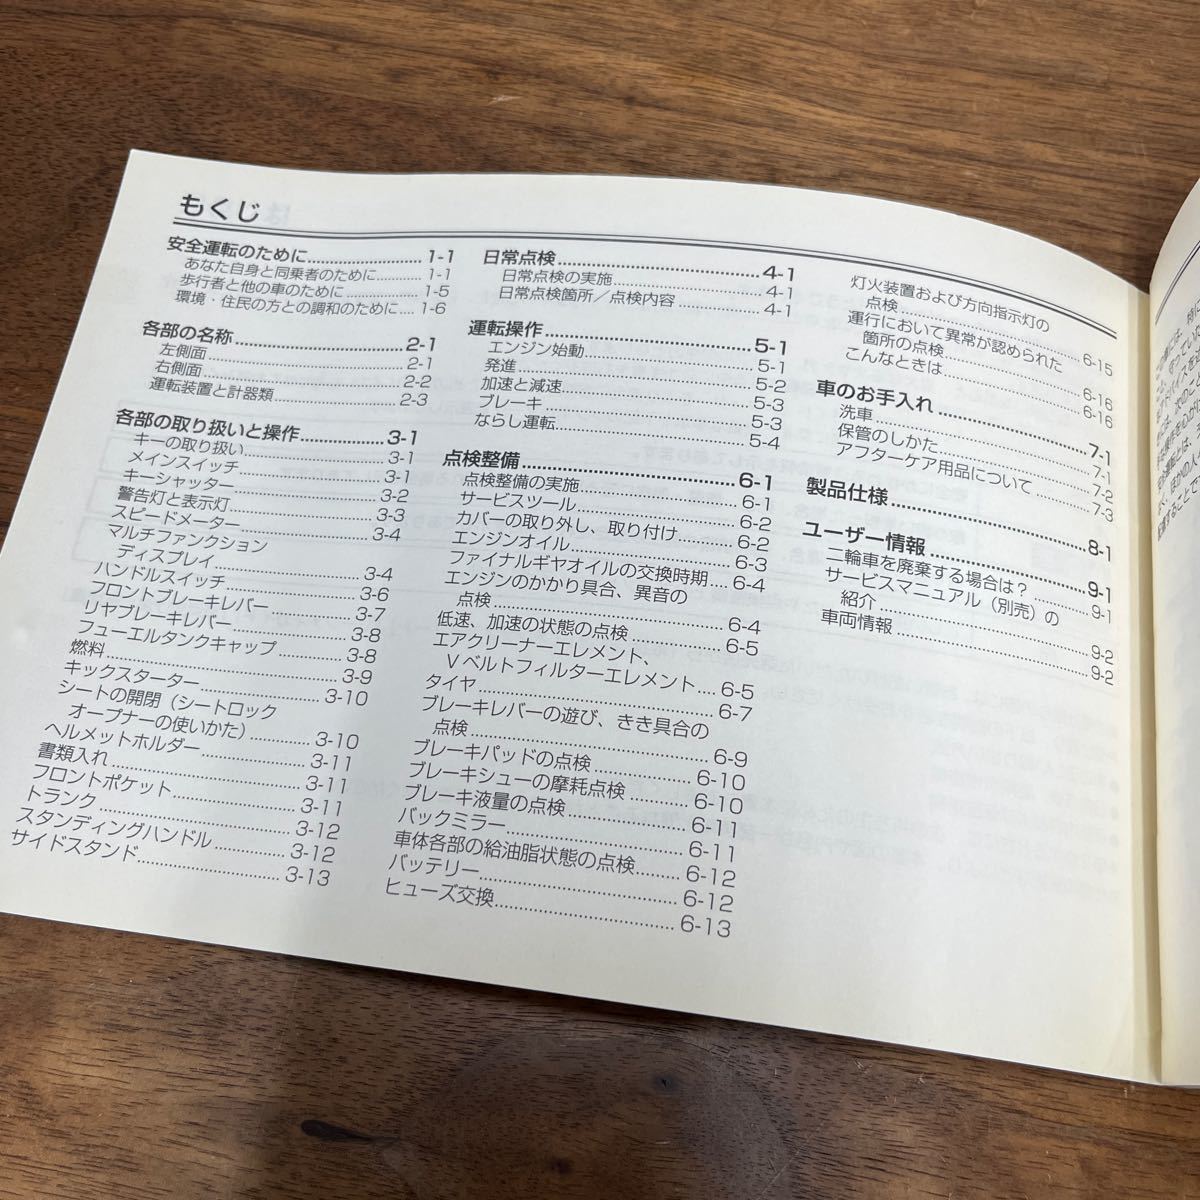 もくじ
安全運転のために 1-1
あなた自身と同乗者のために 1-1
歩行者と他の車のために 1-5
環境・住民の方との調和のために 1-6
各部の名称 2-1
左側面 2-1
右側面 2-2
運転装置と計器類 2-3
各部の取り扱いと操作 3-1
キーの取り扱い 3-1
メインスイッチ 3-1
キーシャッター 3-2
警告灯と表示灯 3-3
スピードメーター 3-4
マルチファンクション
ディスプレイ 3-4
ハンドルスイッチ 3-6
フロントブレーキレバー 3-7
リヤブレーキレバー 3-8
フューエルタンクキャップ 3-8
燃料 3-9
キックスターター 3-10
シートの開閉（シートロック
オープナーの使いかた） 3-10
ヘルメットホルダー 3-11
書類入れ 3-11
フロントポケット 3-11
トランク 3-12
スタンディングハンドル 3-12
サイドスタンド 3-13
日常点検 4-1
日常点検の実施 4-1
日常点検箇所／点検内容 4-1
運転操作 5-1
エンジン始動 5-1
発進 5-2
加速と減速 5-3
ブレーキ 5-3
ならし運転 5-4
点検整備 6-1
点検整備の実施 6-1
サービスツール 6-2
カバーの取り外し、取り付け 6-2
エンジンオイル 6-3
ファイナルギヤオイルの交換時期 6-4
エンジンのかかり具合、異音の
点検 6-4
低速、加速の状態の点検 6-5
エアクリーナーエレメント、
Ｖベルトフィルターエレメント 6-5
タイヤ 6-7
ブレーキレバーの遊び、きき具合の
点検 6-9
ブレーキパッドの点検 6-10
ブレーキシューの摩耗点検 6-10
ブレーキ液量の点検 6-11
バックミラー 6-11
車体各部の給油脂状態の点検 6-12
バッテリー 6-12
ヒューズ交換 6-13
灯火装置および方向指示灯の
点検 6-15
運行において異常が認められた
箇所の点検 6-16
こんなときは 6-16
車のお手入れ 7-1
洗車 7-1
保管のしかた 7-2
アフターケア用品について 7-3
製品仕様 8-1
ユーザー情報 9-1
二輪車を廃棄する場合は？ 9-1
サービスマニュアル（別売）の
紹介 9-2
車両情報 9-2